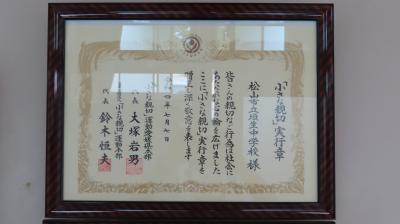 「小さな親切」実行章
松山市立垣生中学校 様
皆さんの親切な行為は社会に
あたたかな心の輪を広げました
ここに「小さな親切」実行章を
贈呈し深く敬意を表します
四年七月七日
「小さな親切」運動愛媛県本部
代表 大塚岩男
「小さな親切」運動本部
代表 鈴木恒夫